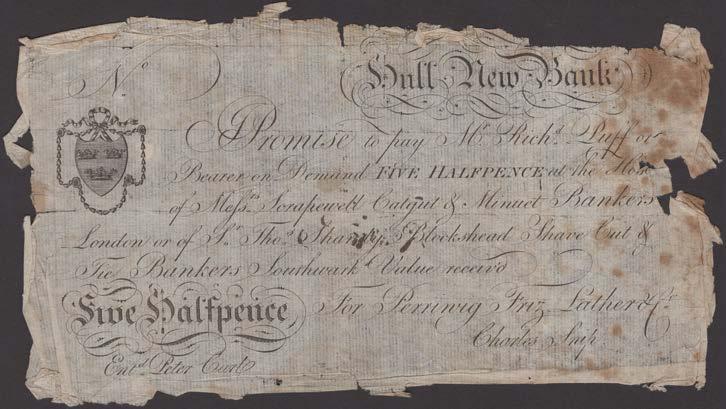 No
Hull New Bank
I Promise to pay Mr. Richd. Puff or
Bearer on Demand FIVE HALFPENCE at the House
of Messrs Scrapewell Catgut & Minuet Bankers
London or of Sr. Thos. Blockshead Shave Cut &
Tie Bankers Southwark Value receivd
Five Halfpence For Perriwig Friz Lather & Co.
Charles Snip
Entd. Peter Curl